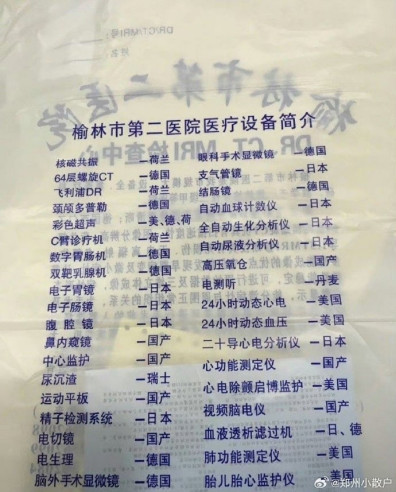 DR/CT/MRI号
榆林市第二医院
DR CT MRI 检查中心
榆林市第二医院医疗设备简介
核磁共振 —荷兰
64层螺旋CT —德国
飞利浦DR —荷兰
颈颅多普勒 —德国
彩色超声 —美、德、荷
C臂诊疗机 —荷兰
数字胃肠机 —德国
双靶乳腺机 —德国
电子胃镜 —日本
电子肠镜 —日本
腹腔镜 —日本
鼻内窥镜 —国产
中心监护 —国产
尿沉渣 —瑞士
运动平板 —国产
精子检测系统 —日本
电切镜 —国产
电生理 —德国
脑外手术显微镜 —德国
眼科手术显微镜 —德国
支气管镜 —日本
结肠镜 —德国
自动血球计数仪 —日本
全自动生化分析仪 —日本
自动尿液分析仪 —日本
高压氧仓 —国产
电测听 —丹麦
24小时动态心电 —美国
24小时动态血压 —美国
二十导心电分析仪 —日本
心功能测定仪 —国产
心电除颤启博监护 —美国
视频脑电仪 —国产
血液透析滤过机 —日、德
肺功能测定仪 —美国
胎儿胎心监护仪 —美国
@郑州小散户